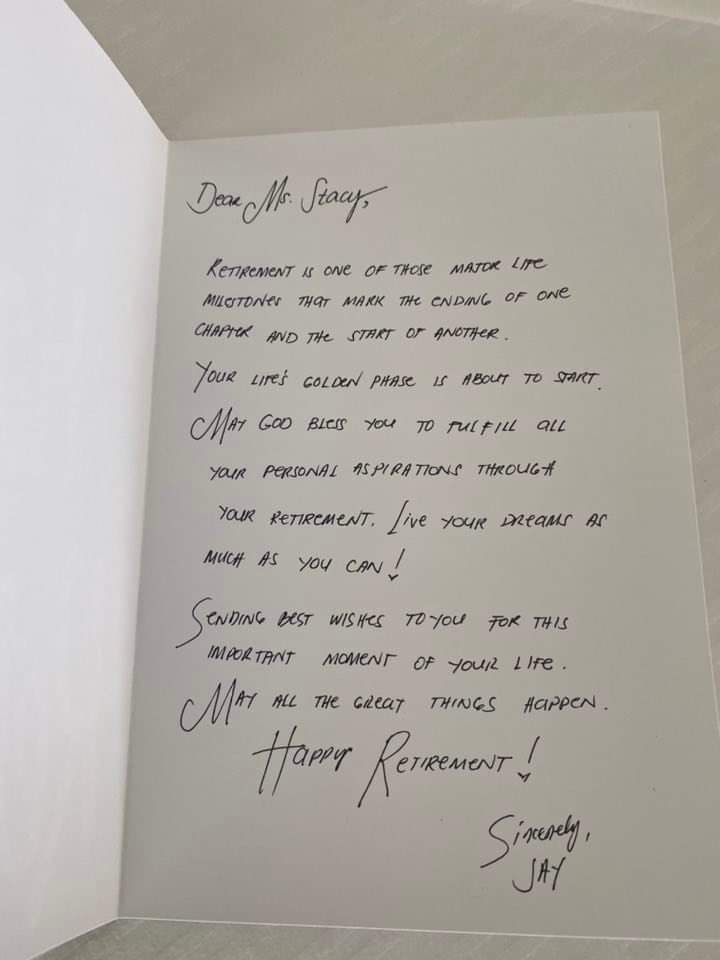 Dear Ms. Stacy,
RETIREMENT IS ONE OF THOSE MAJOR LIFE
MILESTONES THAT MARK THE ENDING OF ONE
CHAPTER AND THE START OF ANOTHER.
YOUR LIFE'S GOLDEN PHASE IS ABOUT TO START.
MAY GOD BLESS YOU TO FULFILL ALL
YOUR PERSONAL ASPIRATIONS THROUGH
YOUR RETIREMENT. LIVE YOUR DREAMS AS
MUCH AS YOU CAN!
SENDING BEST WISHES TO YOU FOR THIS
IMPORTANT MOMENT OF YOUR LIFE.
MAY ALL THE GREAT THINGS HAPPEN.
HAPPY RETIREMENT!
Sincerely,
JAY